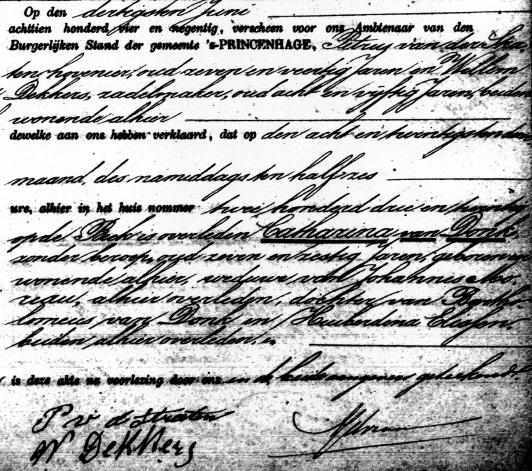 Op den dertigsten Juni
achttien honderd vier en negentig, verscheen voor ons Ambtenaar van den
Burgerlijken Stand der gemeente 's-PRINCENHAGE, Petrus van der Stra
ten hovenier, oud zeven en veertig Jaren en Willem
Dekkers, zadelmaker, oud acht en vijftig Jaren, beiden
wonende alhier
dewelke aan ons hebben verklaard, dat op den acht en twintigsten dezer
maand, des namiddags ten half zes
ure, alhier in het huis nommer twee honderd drie en twintig
op de Beek is overleden Catharina van Donk
zonder beroep, oud zeven en zestig Jaren, geboren en
wonende alhier, weduwe van Johannes
alhier overleden, dochter van Bartho
lomeus van Donk en Huiberdina
beiden alhier overleden, en
is deze akte na voorlezing door ons en de beide aangevers geteekend.
P v d Straten
W Dekkers